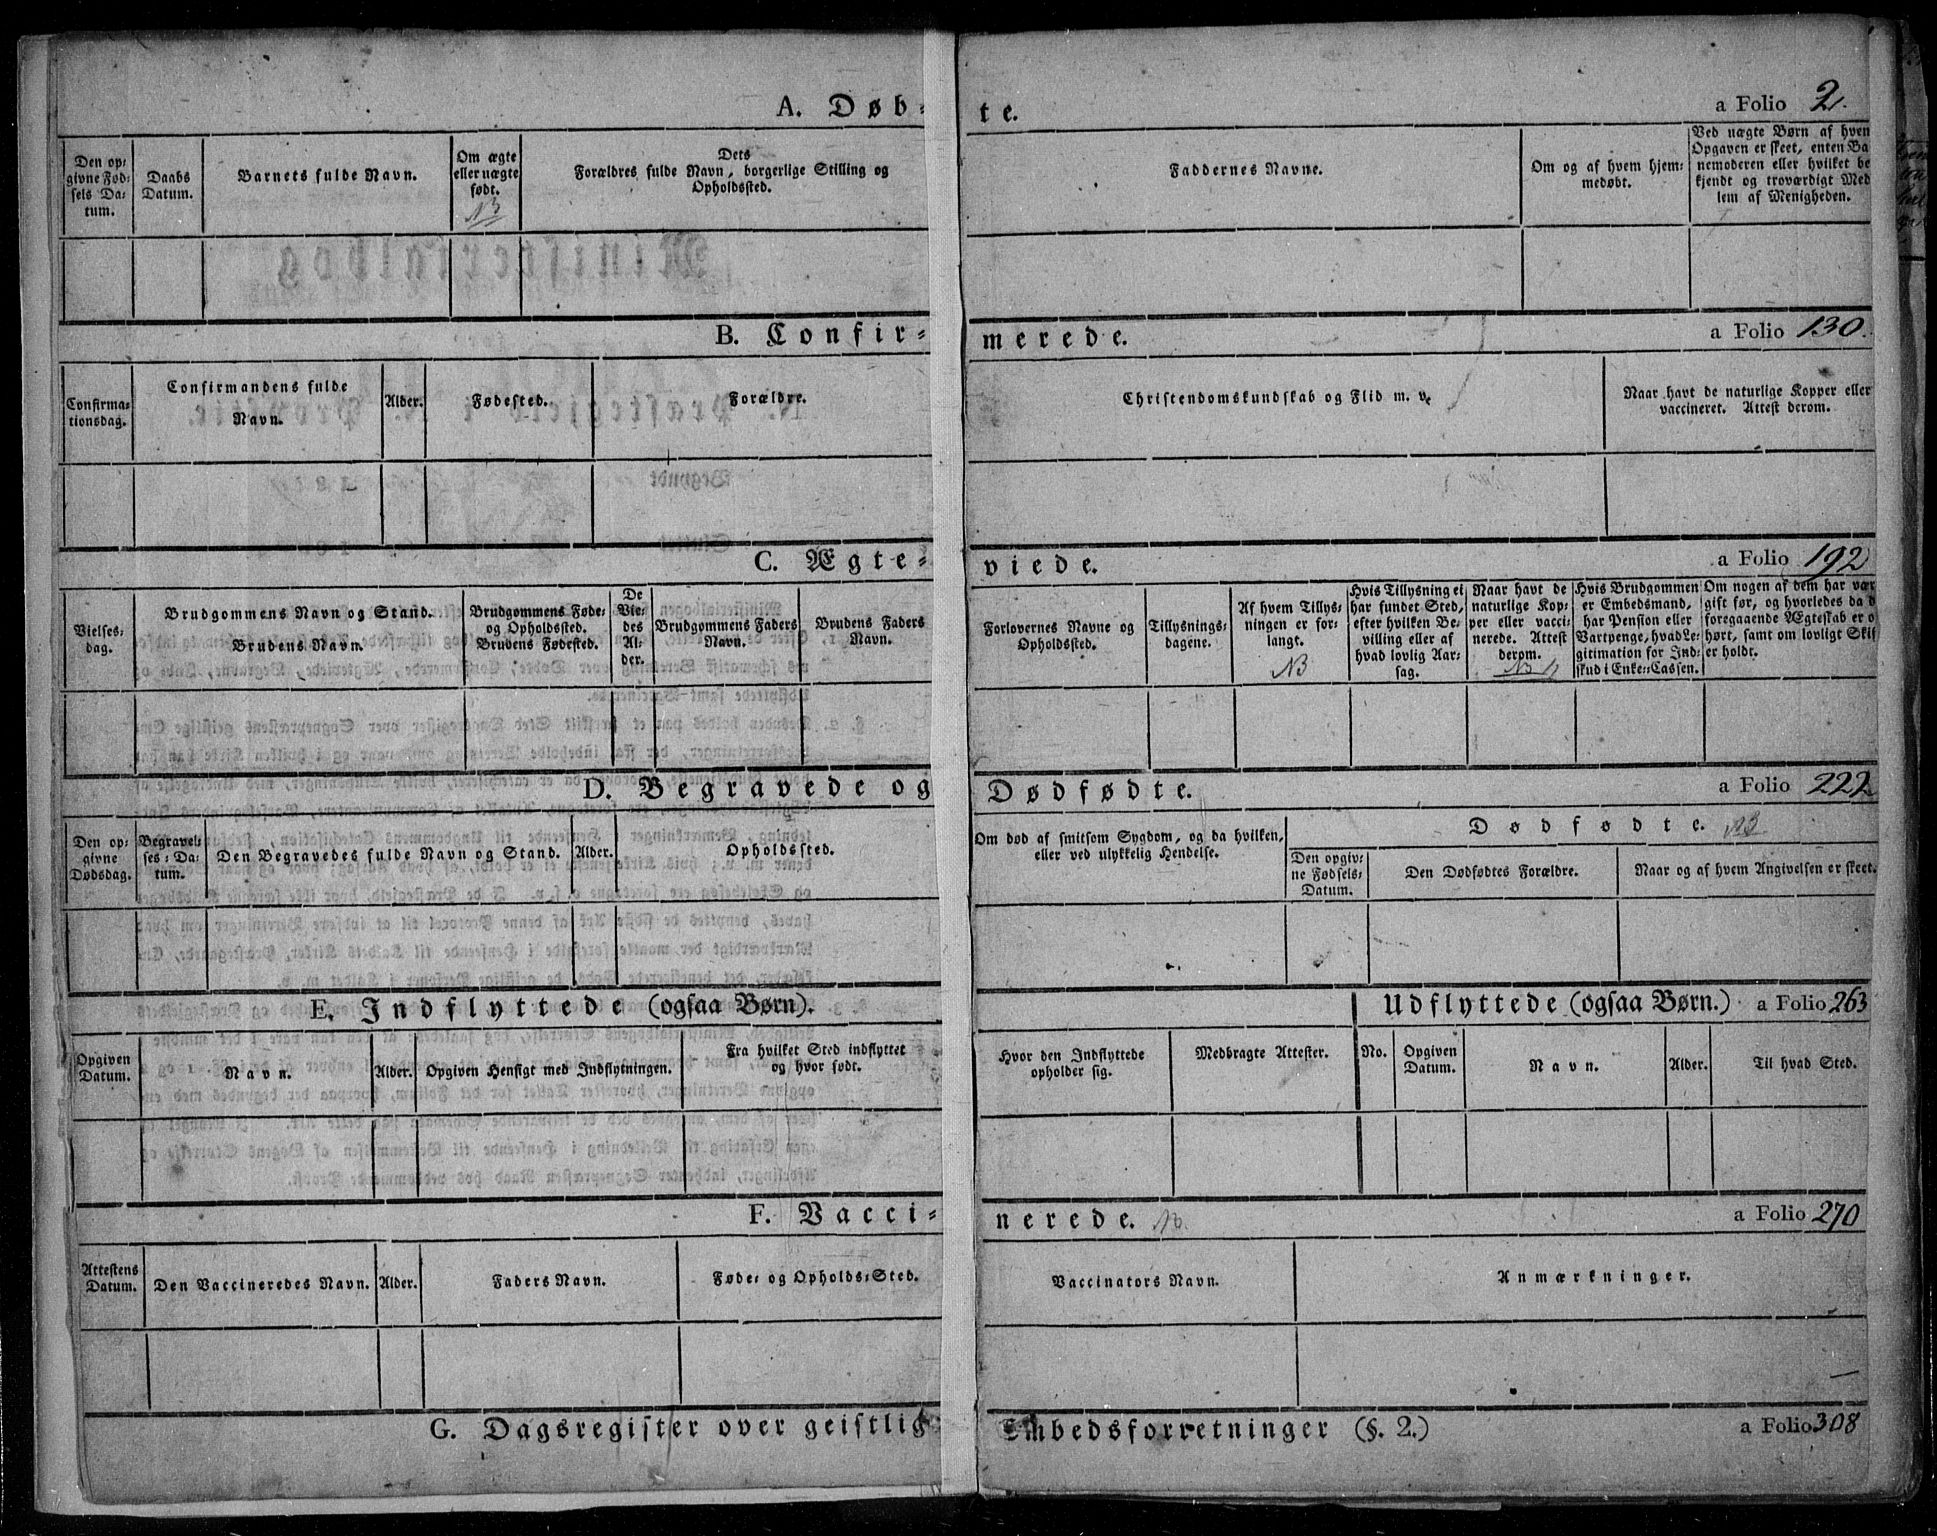 A. Døb-
te.
a Folio 2.
Den op-
givne Fød-
sels Da-
tum.
Daabs
Datum.
Barnets fulde Navn.
Om ægte
eller uægte
født.
NB
Dets
Forældres fulde Navn, borgerlige Stilling og
Opholdssted.
Faddernes Navne.
Om og af hvem hjem-
medøbt.
Ved uægte Børn af hven
Opgaven er skeet, enten Ba
nemoderen eller hvilket be
kjendt og troværdigt Med
lem af Menigheden.
B. Confir-
merede.
a Folio 130.
Confirma-
tionsdag.
Confirmandens fulde
Navn.
Alder.
Fødested.
Forældre.
Christendomskundskab og Flid m. v.
Naar havt de naturlige Kopper eller
vaccineret. Attest derom.
C. Ægte-
viede.
a Folio 192
Vielses-
dag.
Brudgommens Navn og Stand.
Brudens Navn.
Brudgommens Føde-
og Opholdssted.
Brudens Fødested.
De
Vie-
des
Al-
der.
Brudgommens Faders
Navn.
Brudens Faders
Navn.
Forlovernes Navne og
Opholdssted.
Tillysnings-
dagene.
Af hvem Tillys-
ningen er for-
langt.
NB
Hvis Tillysning ei
har fundet Sted,
efter hvilken Be-
villing eller af
hvad lovlig Aar-
sag.
Naar havt de
naturlige Kop-
per eller vacci-
nerede. Attest
derom.
NB
Hvis Brudgommen
er Embedsmand,
har Pension eller
Vartpenge, hvad Le-
gitimation for Ind-
skud i Enke-Cassen.
Om nogen af dem har vær
gift før, og hvorledes da d
foregaaende Ægteskab er o
hørt, samt om lovligt Skif
er holdt.
D. Begravede og
Dødfødte.
a Folio 222
Den op-
givne
Dødsdag.
Begravel-
ses-Da-
tum.
Den Begravedes fulde Navn og Stand.
Alder.
Opholdssted.
Om død af smitsom Sygdom, og da hvilken,
eller ved ulykkelig Hendelse.
Dødfødte. NB
Den opgiv-
ne Fødsels-
Datum.
Den Dødfødtes Forældre.
Naar og af hvem Angivelsen er skeet.
E. Indflyttede (ogsaa Børn).
Udflyttede (ogsaa Børn.) a Folio 263
Opgiven
Datum.
Navn.
Alder.
Opgiven Hensigt med Indflytningen.
Fra hvilket Sted indflyttet
og hvor født.
Hvor den Indflyttede
opholder sig.
Medbragte Attester.
No.
Opgiven
Datum.
Navn.
Alder.
Til hvad Sted.
F. Vacci-
nerede.
a Folio 270
Attestens
Datum.
Den Vaccineredes Navn.
Alder.
Faders Navn.
Føde- og Opholds-Sted.
Vaccinators Navn.
Anmærkninger.
G. Dagsregister over geistlig
Embedsforretninger (§. 2.)
a Folio 308